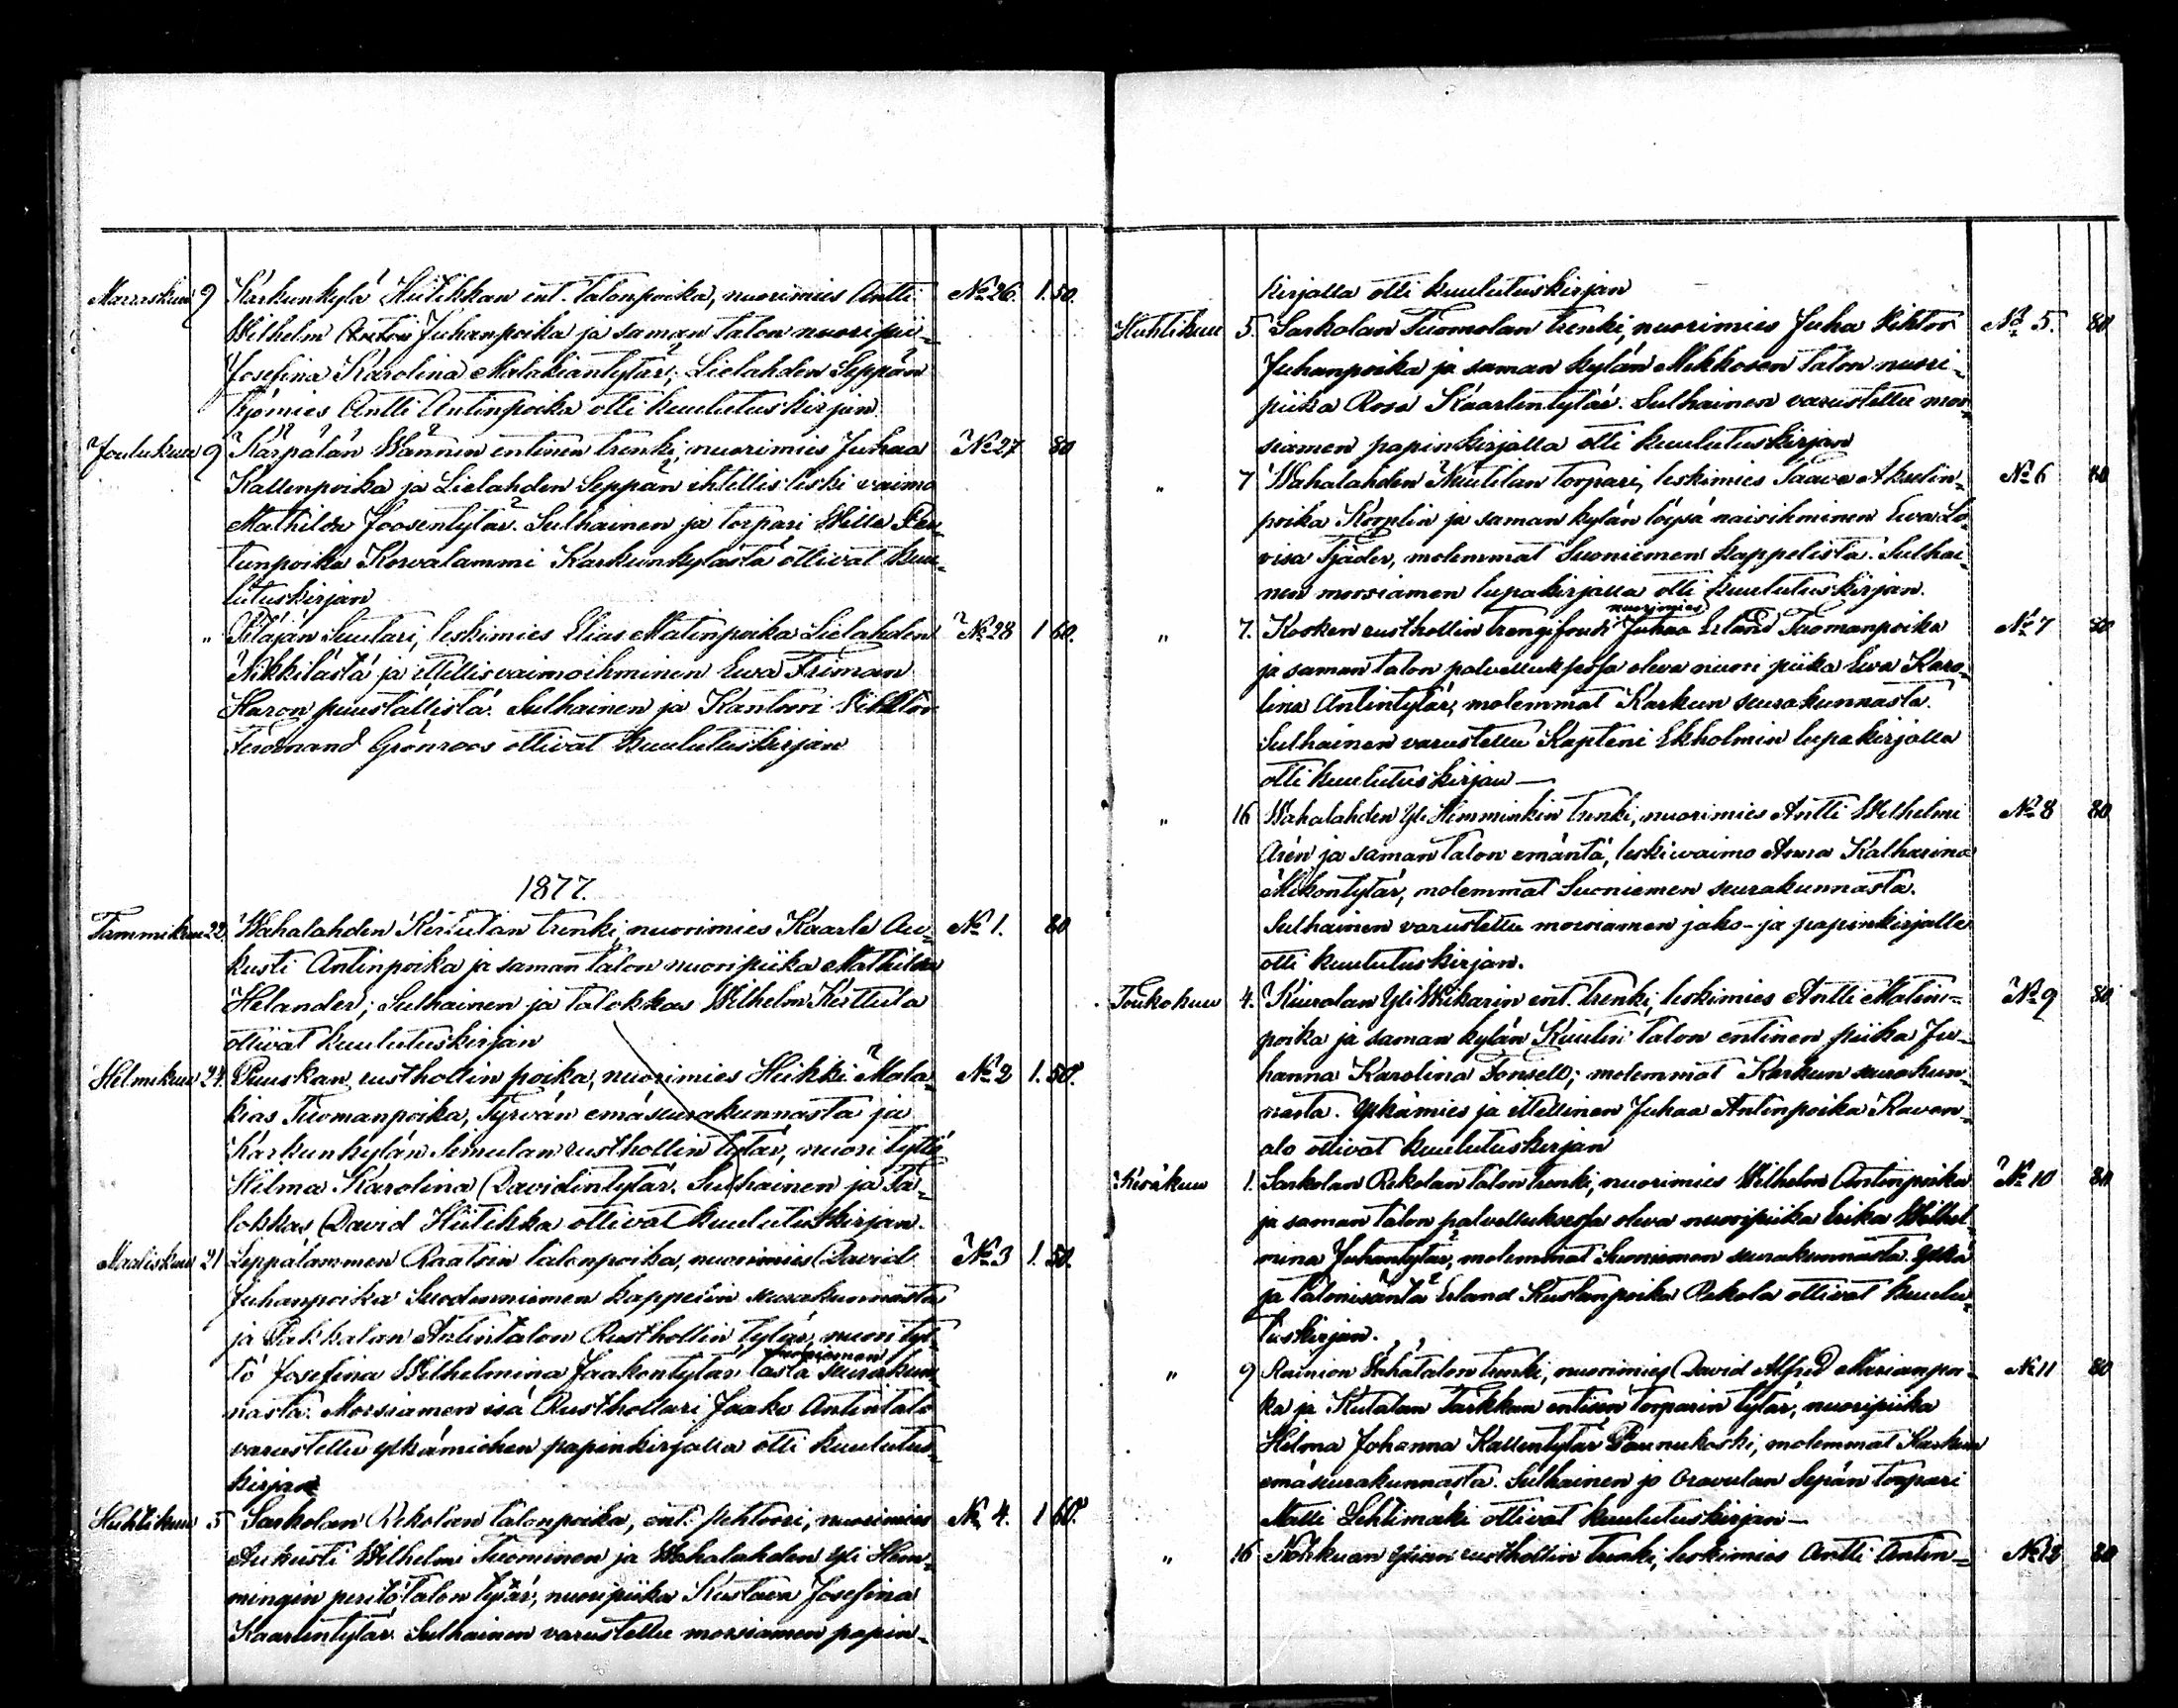 Marraskuu 9 Karkunkylä Hiitikkan ent. talonpoika, nuorimies Antti No 26. 1. 50.
Wilhelm Juhanpoika ja saman talon nuori pii-
Josefina Karolina Malakiantytär; Lielahden Seppän
työmies Antti Antinpoika otti kuulutuskirjan
Joulukuu 9 Kärpälän Männin entinen trenki, nuorimies Juhaa No 27 80
Kallenpoika ja Lielahden Seppän ittellis leski vaimo
Mathilda Joosentytär. Sulhainen ja torpari Wille
tunpoika Kowalammi Karkunkylästä ottivat kuu-
lutuskirjan
" Pitäjän Suutari, leskimies Elias Matinpoika Lielahden No 28 1 60.
Nikkilästä ja ittellisvaimoihminen Ewa Friman
Haron puuställistä. Sulhainen ja Kanttori Wikktor
Ferdinand Grönroos ottivat kuulutuskirjan
1877.
Tammikuu 22. Wahalahden Kerttulan trenki, nuorimies Kaarle Au- No 1. 80
kusti Antinpoika ja saman talon nuoripiika Mathilda
Helander; Sulhainen ja talokkas Wilhelm Kerttula
ottivat kuulutuskirjan
Helmikuu 24. Puuskan, rusthollin poika, nuorimies Heikki Mala- No 2 1. 50.
kias Tuomanpoika, Tyrvän emäseurakunnasta ja
Karkunkylän rusthollin tytär, nuori tyttö
Hilma Karolina Davidintytär. Sulhainen ja Ta-
lokkas, David Hiitikka ottivat kuulutuskirjan.
Maaliskuu 21 Leppälammen Raatoin talonpoika, nuorimies David No 3 1. 50.
Juhanpoika Suodenniemen kappelin seurakunnasta
ja Pakkalan Antintalon Rusthollin tytär, nuori tyt-
morsiamen
tö Josefina Wilhelmina Jaakontytär tästä seurakun-
nasta. Morsiamen isä Rusthollari Jaako Antintalo
varustettu ylkämiehen papinkirjalla otti kuulutus-
kirjan
Huhtikuu 5 Sarkolan Rekolan talonpoika, ent. Pehtoori, nuorimies No 4. 1 60.
Aukusti Wilhelmi Tuominen ja Wahalahden Yli Hem-
mingin perttö talon tytär, nuoripiika Kustava Josefina
Kaarlentytär. Sulhainen varustettu morsiamen papin-
kirjalla otti kuulutuskirjan
Huhtikuu 5. Sarkolan Tuomolan trenki, nuorimies Juha Wiktor No 5. 80
Juhanpoika ja saman kylän Mikkosen talon nuori-
piika Rosa Kaarlentytär. Sulhainen varustettu mor-
siamen papinkirjalla otti kuulutuskirjan
" 7 Wahalahden torpari, leskimies Taave Akselin- No 6 80
poika Korplin ja saman kylän löysä naisihminen Ewa Lo-
visa Tjäder, molemmat Suoniemen kappelista. Sulhai-
nen morsiamen lupakirjalla otti kuulutuskirjan.
nuorimies
" 7. Kosken rusthollin trengifouti Juhaa Erland Tuomanpoika No 7 80
ja saman talon palvelluksessa oleva nuori piika Ewa Karo-
lina Antintytär, molemmat Karkun seurakunnasta.
Sulhainen varustettu Kapteni Ekholmin lupakirjalla
otti kuulutuskirjan —
" 16 Wahalahden Yli Hemminkin trenki, nuorimies Antti Wilhelmi No 8 80
Arén ja saman talon emäntä, leskiwaimo Anna Katharina
Mikontytär, molemmat Suoniemen seurakunnasta.
Sulhainen varustettu morsiamen jako- ja papinkirjalla
otti kuulutuskirjan.
Toukokuu 4. Kiuralan Yli Wikarin ent. trenki, leskimies Antti Matin- No 9 80
poika ja saman kylän Kuutin talon entinen piika Ju-
hanna Karolina Fonsell; molemmat Karkun seurakun-
nasta. Ylkämies ja ittellinen Juhaa Antinpoika Kaven-
alo ottivat kuulutuskirjan
Kesäkuu 1. Sarkolan Rekolan talon trenki, nuorimies Wilhelm Antinpoika No 10 80
ja saman talon palvelluksessa oleva nuoripiika Erika Wilhel-
mina Juhantytär, molemmat Suoniemen seurakunnasta. Ylkä
ja talonisäntä Erland Kustanpoika Rekola ottivat kuulu-
tuskirjan.
" 9 Rainion Wahatalon trenki, nuorimies David Alfred Marianpoi- No 11 80
ka ja Kutalan Tarkkan entisen torparin tytär, nuoripiika
Hilma Johanna Kallentytär Paunukoski, molemmat Karkun
emäseurakunnasta. Sulhainen ja Oravulan Sepän torpari
Matti Lehtimäki ottivat kuulutuskirjan —
" 16 Nohkuan Ylian rusthollin trenki, leskimies Antti Antin- No 12 80